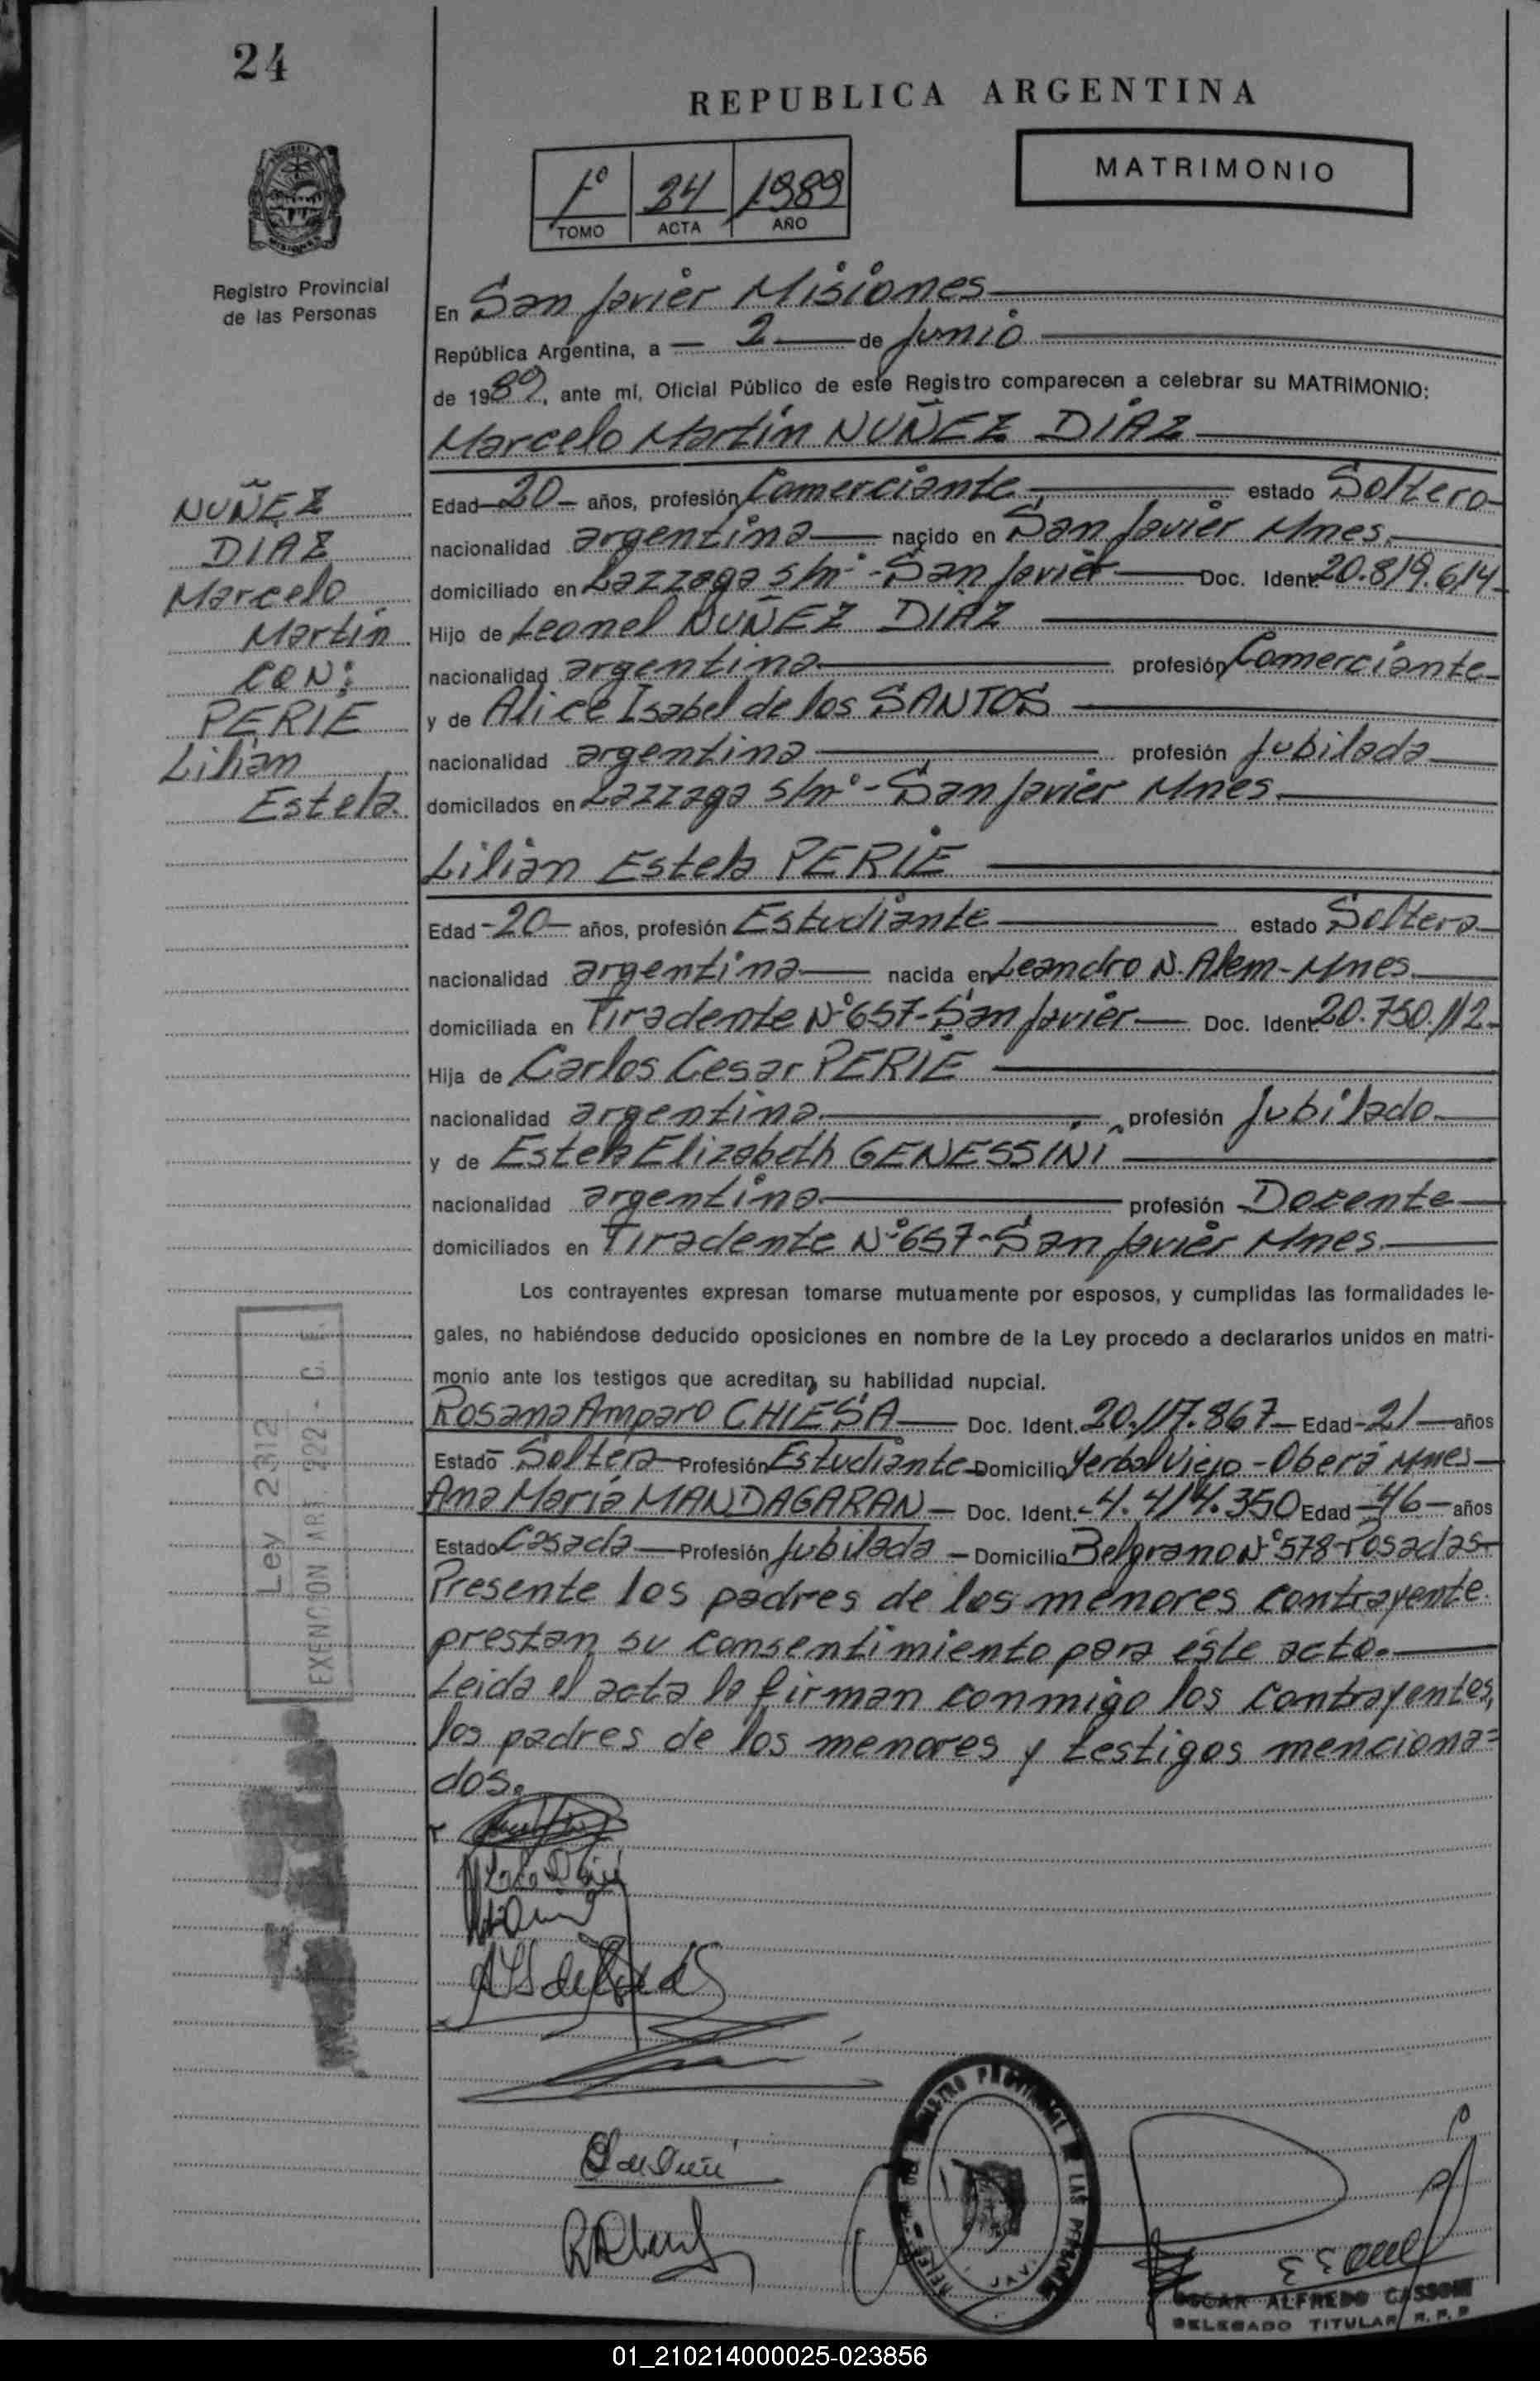 24
REPUBLICA ARGENTINA
MATRIMONIO
1º 24 1989
TOMO ACTA AÑO
Registro Provincial
de las Personas
En San Javier Misiones
República Argentina, a 2 de Junio
de 1989, ante mí, Oficial Público de este Registro comparecen a celebrar su MATRIMONIO:
Marcelo Martín NUÑEZ DIAZ
Edad 20 años, profesión Comerciante estado Soltero
nacionalidad argentina nacido en San Javier Mnes.
domiciliado en Lazzaga s/nº - San Javier Doc. Ident. 20.819.614
Hijo de Leonel NUÑEZ DIAZ
nacionalidad argentina profesión Comerciante
y de Alice Isabel de los SANTOS
nacionalidad argentina profesión Jubilada
domiciliados en Lazzaga s/nº - San Javier Mnes.
NUÑEZ
DIAZ
Marcelo
Martín
CON:
PERIE
Lilian
Estela.
Lilian Estela PERIE
Edad 20 años, profesión Estudiante estado Soltera
nacionalidad argentina nacida en Leandro N. Alem - Mnes.
domiciliada en Tiradente Nº 657 - San Javier Doc. Ident. 20.750.112
Hija de Carlos Cesar PERIE
nacionalidad argentina profesión Jubilado
y de Estela Elizabeth GENESSINI
nacionalidad argentina profesión Docente
domiciliados en Tiradente Nº 657 - San Javier Mnes.
Los contrayentes expresan tomarse mutuamente por esposos, y cumplidas las formalidades le-
gales, no habiéndose deducido oposiciones en nombre de la Ley procedo a declararlos unidos en matri-
monio ante los testigos que acreditan su habilidad nupcial.
Rosana Amparo CHIESA Doc. Ident. 20.117.867 Edad 21 años
Estado Soltera Profesión Estudiante Domicilio Yerbal Viejo - Oberá Mnes
Ana María MANDAGARAN Doc. Ident. 4.414.350 Edad 46 años
Estado Casada Profesión Jubilada Domicilio Belgrano Nº 578 Posadas
Presente los padres de los menores contrayente
prestan su consentimiento para éste acto.
Leida el acta la firman conmigo los contrayentes,
los padres de los menores y testigos menciona=
dos.
Ley 2312
EXENCION ART. 222 - C. F.
REGISTRO PROVINCIAL DE LAS PERSONAS
OSCAR ALFREDO CASSONI
DELEGADO TITULAR R.P.P
01_210214000025-023856